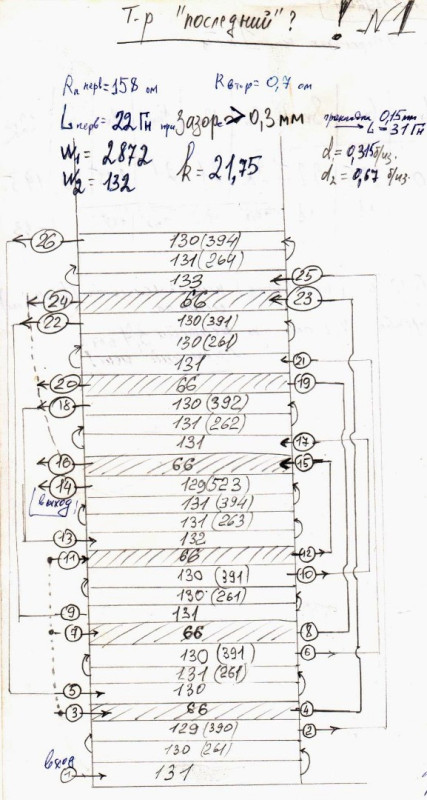 Т-р "последний"? ! N1
Rп перв=158 ом Rвтор=0,7 ом
L перв=22Гн при Зазоре ≈> 0,3мм
прокладка 0,15мм
L=31Гн
W1= 2872
W2= 132
k=21,75
d1=0,315 б/из.
d2=0,67 б/из.
26 130(394)
131(264)
133 25
24 66 23
22 130(391)
130(261)
131 21
20 66 19
18 130(392)
131(262)
131 17
16 66 15
14 129(523)
выход 131(394)
131(263)
13 132
11 66 12
130 (391) 10
130(261)
9 131
7 66 8
130(391) 6
131(261)
5 130
3 66 4
129(390) 2
130(261)
вход
1 131